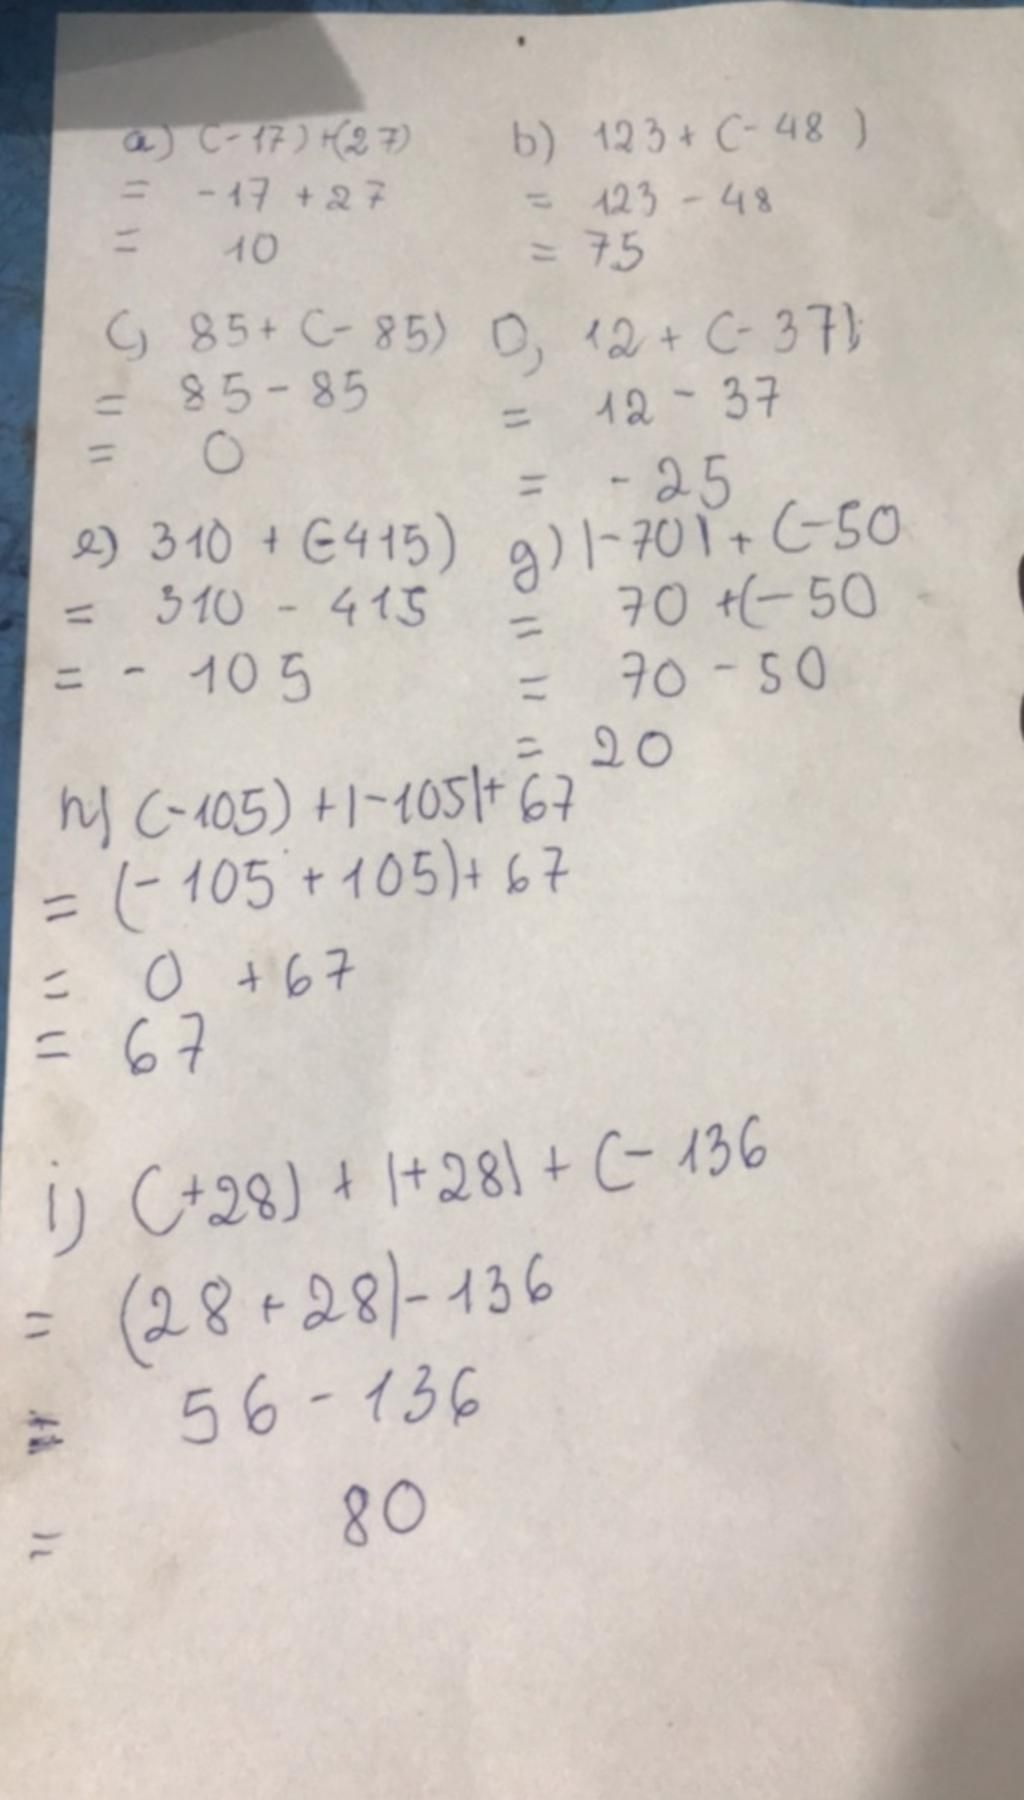 a) (-17)+(27)
= -17 + 27
= 10
b) 123 + (-48)
= 123 - 48
= 75
c, 85 + (-85)
= 85 - 85
= 0
D, 12 + (-37)
= 12 - 37
= -25
e) 310 + (-415)
= 310 - 415
= - 105
g) |-70| + (-50
= 70 +(-50
= 70 - 50
= 20
h) (-105) + |-105| + 67
= (-105 + 105) + 67
= 0 + 67
= 67
i) (+28) + |+28| + (- 136
= (28 + 28) - 136
= 56 - 136
= 80